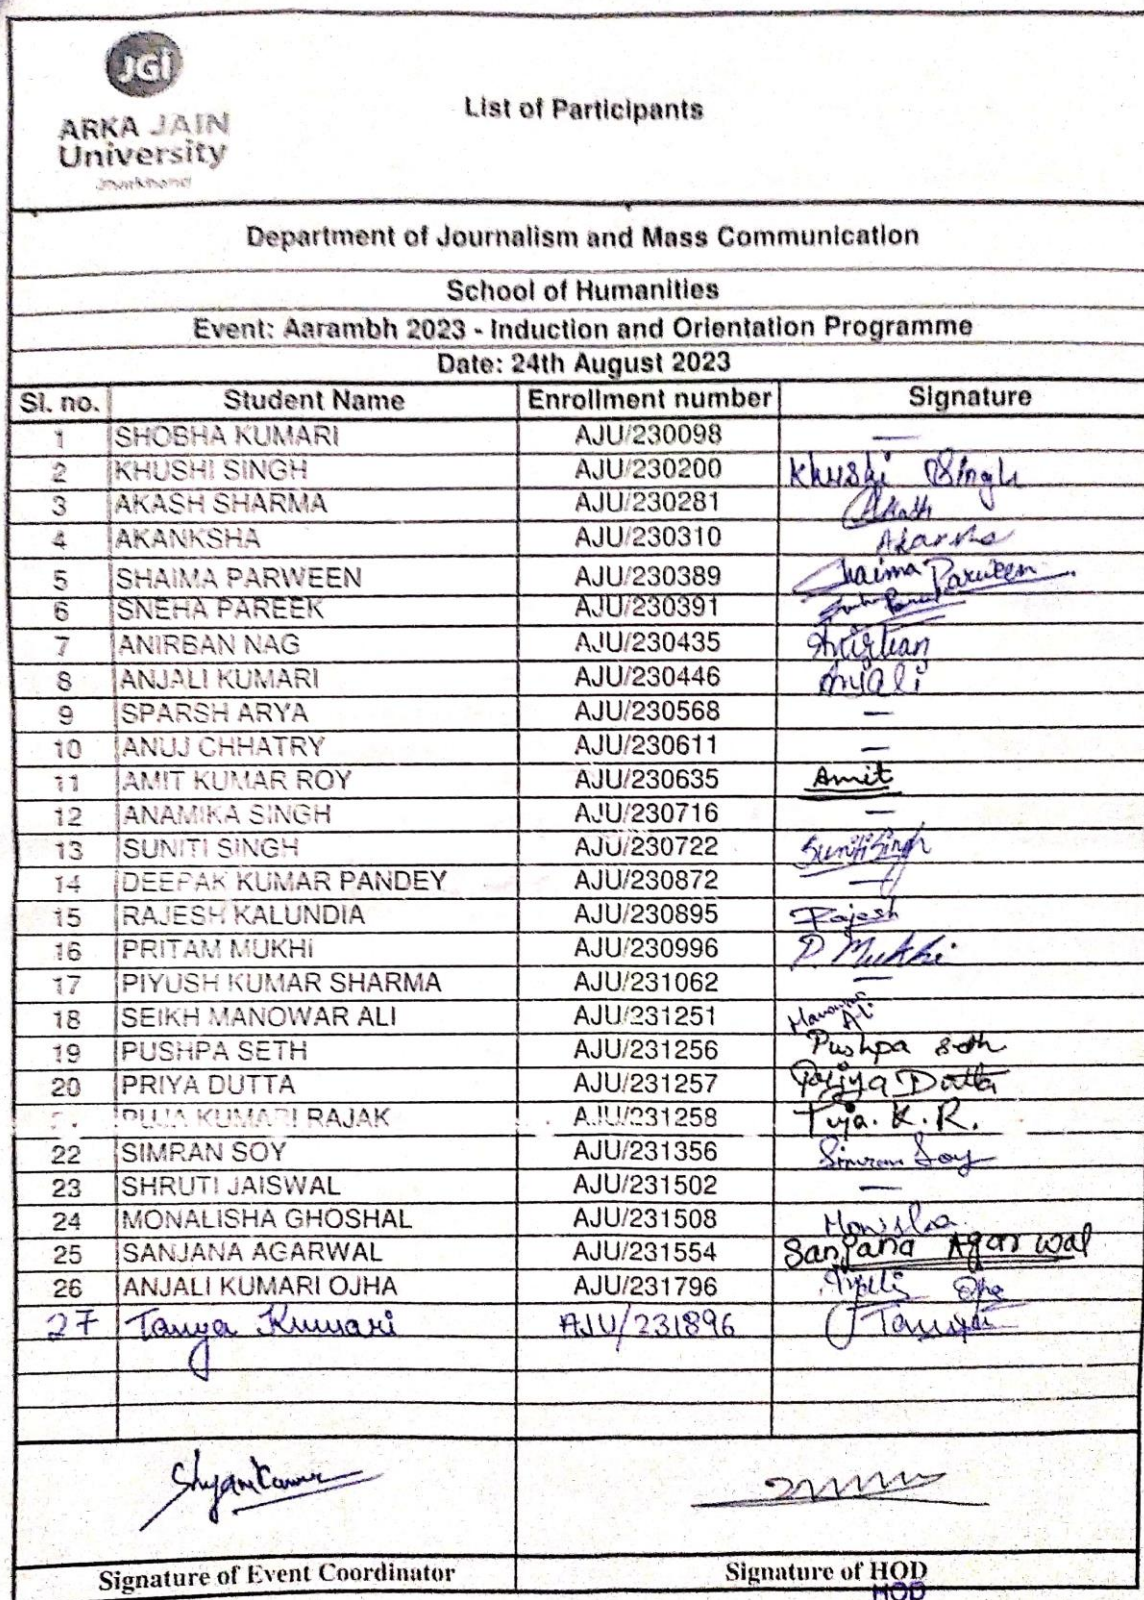 JGi
ARKA JAIN
University
Jharkhand
List of Participants
Department of Journalism and Mass Communication
School of Humanities
Event: Aarambh 2023 - Induction and Orientation Programme
Date: 24th August 2023
Sl. no. Student Name Enrollment number Signature
1 SHOBHA KUMARI AJU/230098 —
2 KHUSHI SINGH AJU/230200 Khushi Singh
3 AKASH SHARMA AJU/230281 Akash
4 AKANKSHA AJU/230310
5 SHAIMA PARWEEN AJU/230389 Shaima Parween
6 SNEHA PAREEK AJU/230391
7 ANIRBAN NAG AJU/230435 Anirban
8 ANJALI KUMARI AJU/230446 Anjali
9 SPARSH ARYA AJU/230568 —
10 ANUJ CHHATRY AJU/230611 —
11 AMIT KUMAR ROY AJU/230635 Amit
12 ANAMIKA SINGH AJU/230716 —
13 SUNITI SINGH AJU/230722 Suniti Singh
14 DEEPAK KUMAR PANDEY AJU/230872 —
15 RAJESH KALUNDIA AJU/230895 Rajesh
16 PRITAM MUKHI AJU/230996 P. Mukhi
17 PIYUSH KUMAR SHARMA AJU/231062 —
18 SEIKH MANOWAR ALI AJU/231251 Manowar Ali
19 PUSHPA SETH AJU/231256 Pushpa Seth
20 PRIYA DUTTA AJU/231257 Priya Dutta
PUJA KUMARI RAJAK AJU/231258 Puja. K. R.
22 SIMRAN SOY AJU/231356 Simran Soy
23 SHRUTI JAISWAL AJU/231502 —
24 MONALISHA GHOSHAL AJU/231508
25 SANJANA AGARWAL AJU/231554 Sanjana Agarwal
26 ANJALI KUMARI OJHA AJU/231796
27 Tanya Kumari AJU/231896 Tanya
Signature of Event Coordinator Signature of HOD
HOD